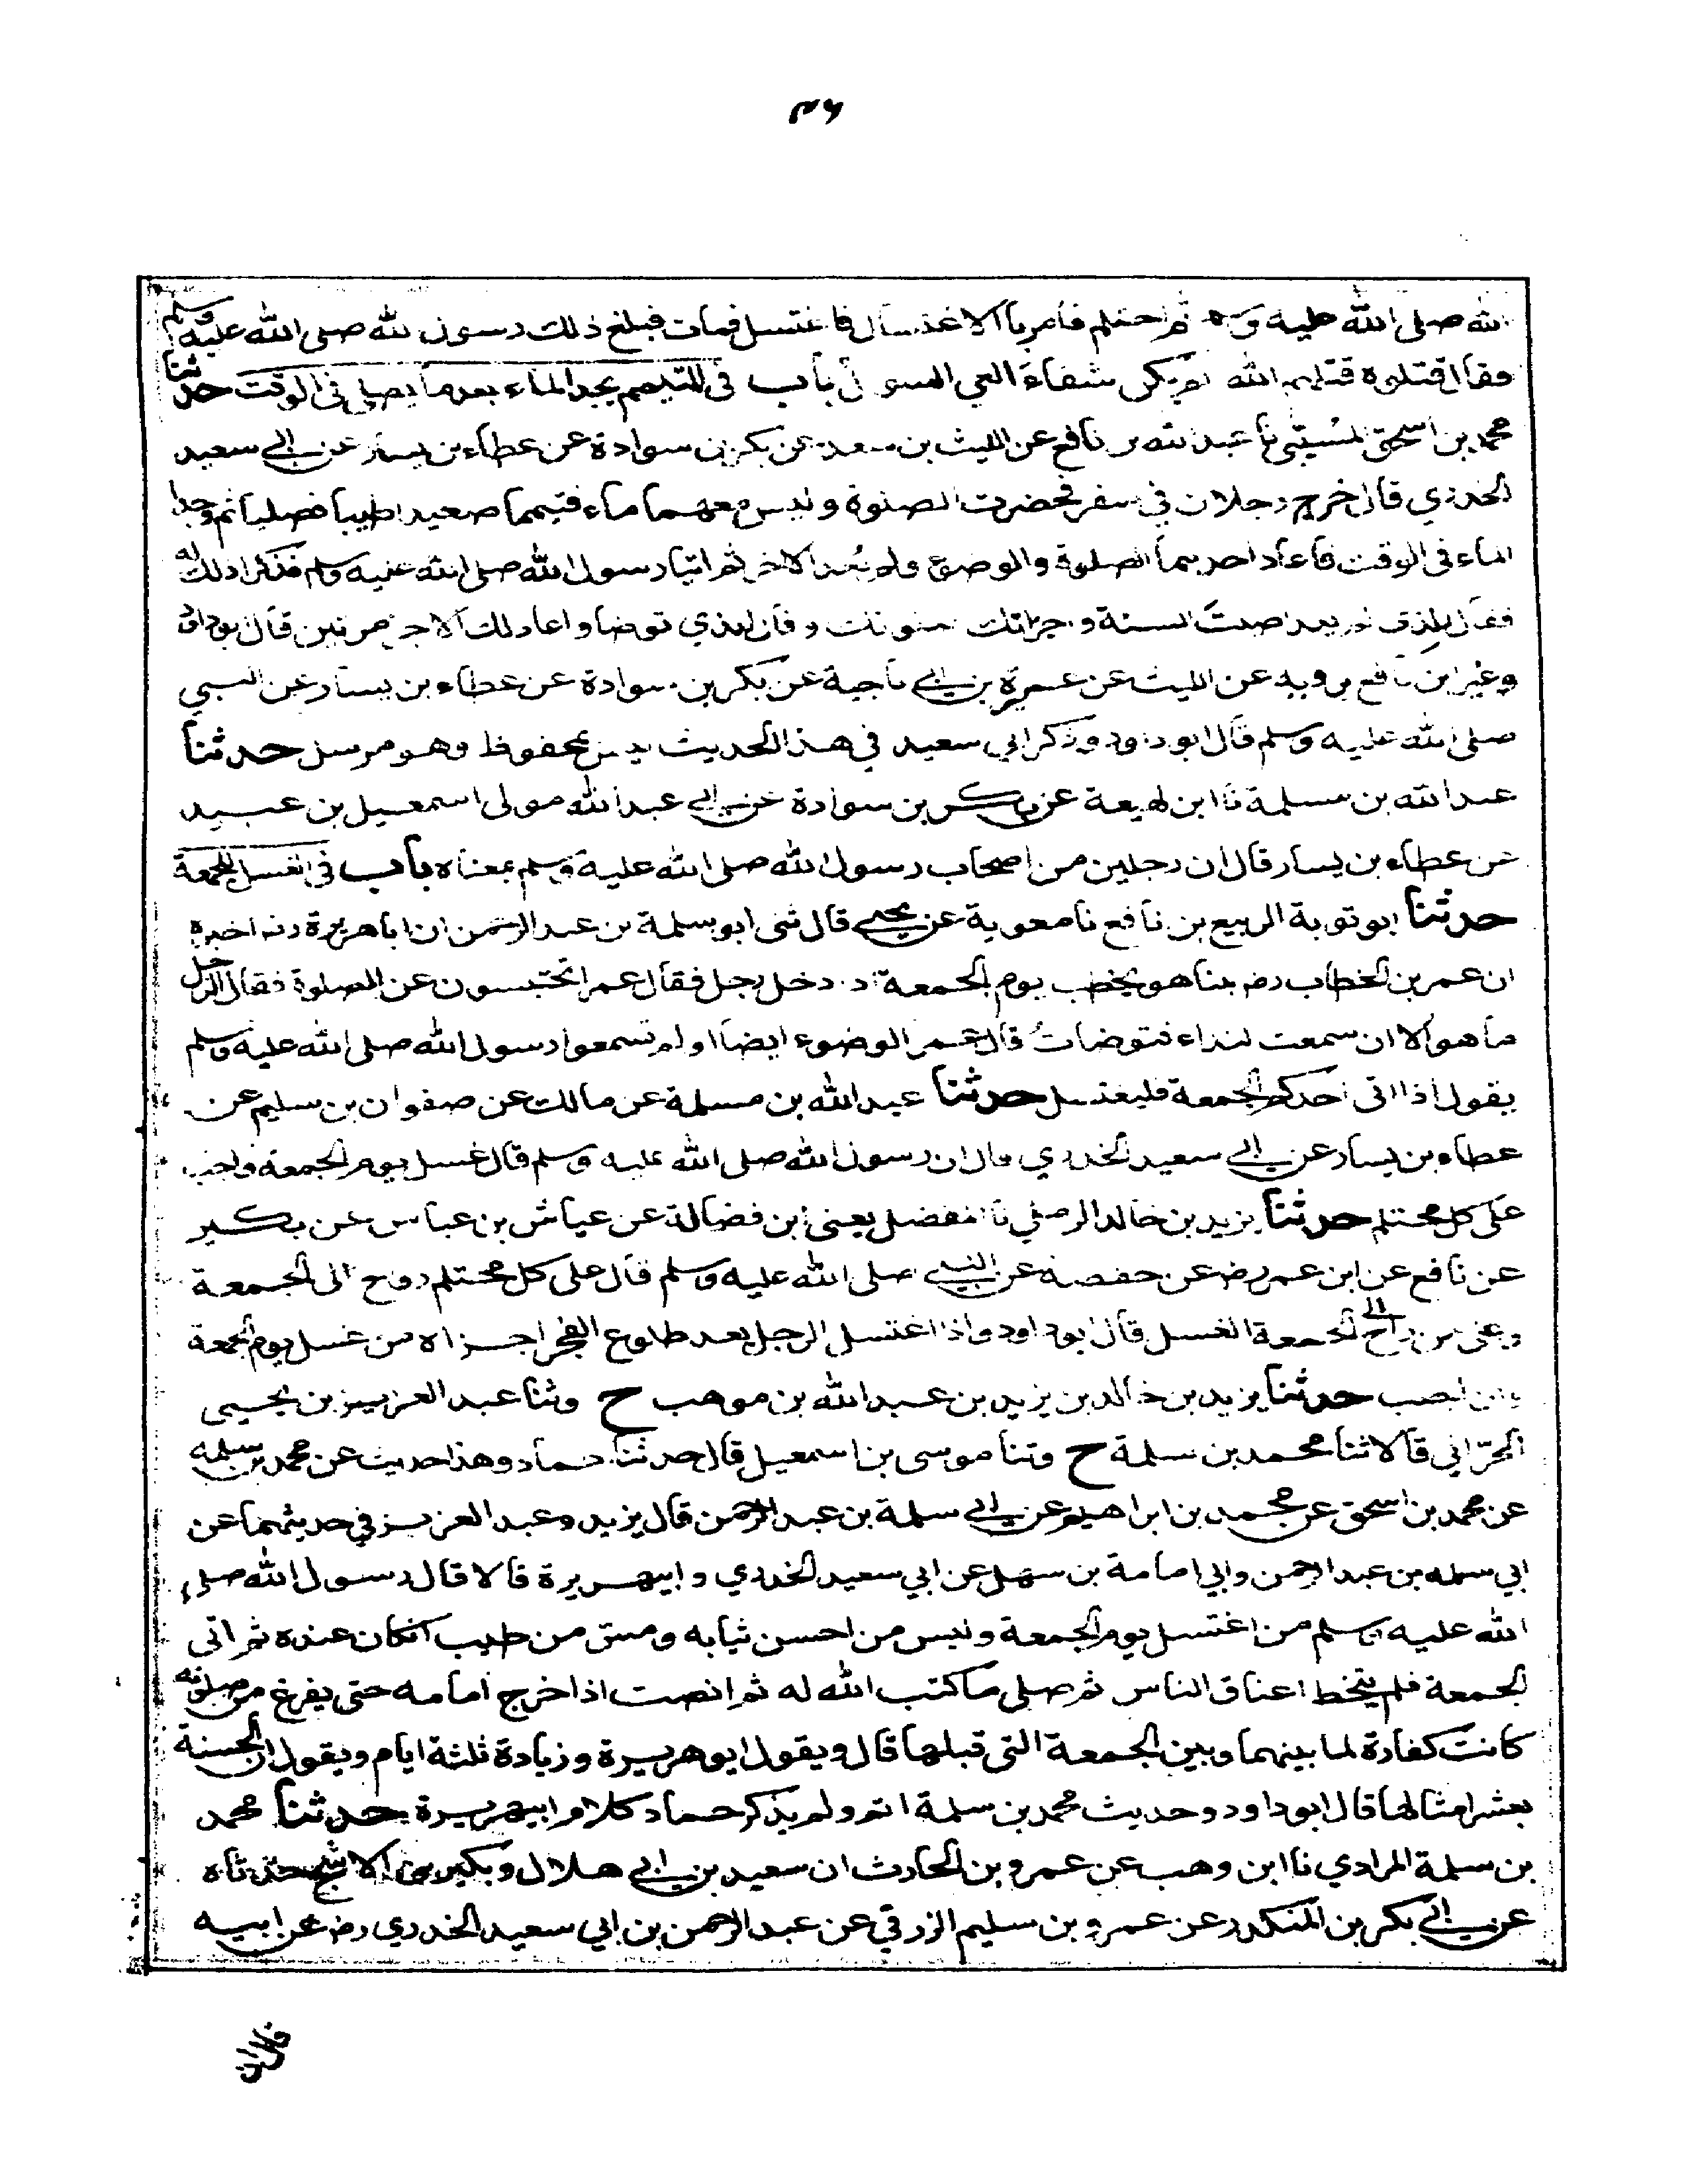 ٤٦
الله صلى الله عليه وسلم ثم احتلم فأمر بالاغتسال فاغتسل فمات فبلغ ذلك رسول الله صلى الله عليه وسلم
فقال قتلوه قتلهم الله الم يكن شفاء العي السوال باب فى المتيمم يجد الماء بعدما يصلى فى الوقت حدثنا
محمد بن اسحق المسيبى نا عبد الله بن نافع عن الليث بن سعد عن بكر بن سوادة عن عطاء بن يسار عن ابي سعيد
الخدري قال خرج رجلان في سفر فحضرت الصلوة وليس معهما ماء فتيمما صعيدا طيبا فصليا ثم وجدا
الماء فى الوقت فاعاد احدهما الصلوة والوضوء ولم يعد الاخر ثم اتيا رسول الله صلى الله عليه وسلم فذكرا ذلك له
فقال للذى لم يعد اصبت السنة واجزاتك صلوتك وقال للذي توضا واعاد لك الاجر مرتين قال ابو داود
وغير ابن نافع يرويه عن الليث عن عميرة بن ابي ناجية عن بكر بن سوادة عن عطاء بن يسار عن النبي
صلى الله عليه وسلم قال ابو داود وذكر ابي سعيد في هذا الحديث ليس بمحفوظ وهو مرسل حدثنا
عبد الله بن مسلمة نا ابن لهيعة عن بكر بن سوادة عن ابي عبد الله مولى اسمعيل بن عبيد
عن عطاء بن يسار قال ان رجلين من اصحاب رسول الله صلى الله عليه وسلم بمعناه باب في الغسل للجمعة
حدثنا ابو توبة الربيع بن نافع نا معوية عن يحيى قال ثنى ابو سلمة بن عبد الرحمن ان ابا هريرة رضه اخبره
ان عمر بن الخطاب رضه بينا هو يخطب يوم الجمعة اذ دخل رجل فقال عمر اتحتبسون عن الصلوة فقال الرجل
ما هو الا ان سمعت النداء فتوضات قال عمر الوضوء ايضا اولم تسمعوا رسول الله صلى الله عليه وسلم
يقول اذا اتى احدكم الجمعة فليغتسل حدثنا عبد الله بن مسلمة عن مالك عن صفوان بن سليم عن
عطاء بن يسار عن ابي سعيد الخدري قال ان رسول الله صلى الله عليه وسلم قال غسل يوم الجمعة واجب
على كل محتلم حدثنا يزيد بن خالد الرملي نا المفضل يعنى ابن فضالة عن عياش بن عباس عن بكير
عن نافع عن ابن عمر رضه عن حفصة عن النبي صلى الله عليه وسلم قال على كل محتلم رواح الى الجمعة
وعلى من راح الى الجمعة الغسل قال ابو داود واذا اغتسل الرجل بعد طلوع الفجر اجزاه من غسل يوم الجمعة
وان اجنب حدثنا يزيد بن خالد بن يزيد بن عبد الله بن موهب ح وثنا عبد العزيز بن يحيى
الحرّاني قالا ثنا محمد بن سلمة ح وثنا موسى بن اسمعيل قال حدثنا حماد وهذا حديث عن محمد بن سلمه
عن محمد بن اسحق عن محمد بن ابراهيم عن ابي سلمة بن عبد الرحمن قال يزيد وعبد العزيز في حديثهما عن
ابي سلمه بن عبد الرحمن وابي امامة بن سهل عن ابي سعيد الخدري وابيهريرة قالا قال رسول الله صلى
الله عليه وسلم من اغتسل يوم الجمعة ولبس من احسن ثيابه ومس من طيب انكان عنده ثم اتى
الجمعة فلم يتخط اعناق الناس ثم صلى ما كتب الله له ثم انصت اذا خرج امامه حتى يفرغ من صلوته
كانت كفارة لما بينهما وبين الجمعة التى قبلها قال ويقول ابو هريرة وزيادة ثلثة ايام ويقول ان الحسنة
بعشر امثالها قال ابو داود وحديث محمد بن سلمة اتم ولم يذكر حماد كلام ابيهريرة حدثنا محمد
بن سلمة المرادي نا ابن وهب عن عمرو بن الحارث ان سعيد بن ابي هلال وبكير بن الاشج حدثاه
عن ابي بكر بن المنكدر عن عمرو بن سليم الزرقي عن عبد الرحمن بن ابي سعيد الخدري رضه عن ابيه